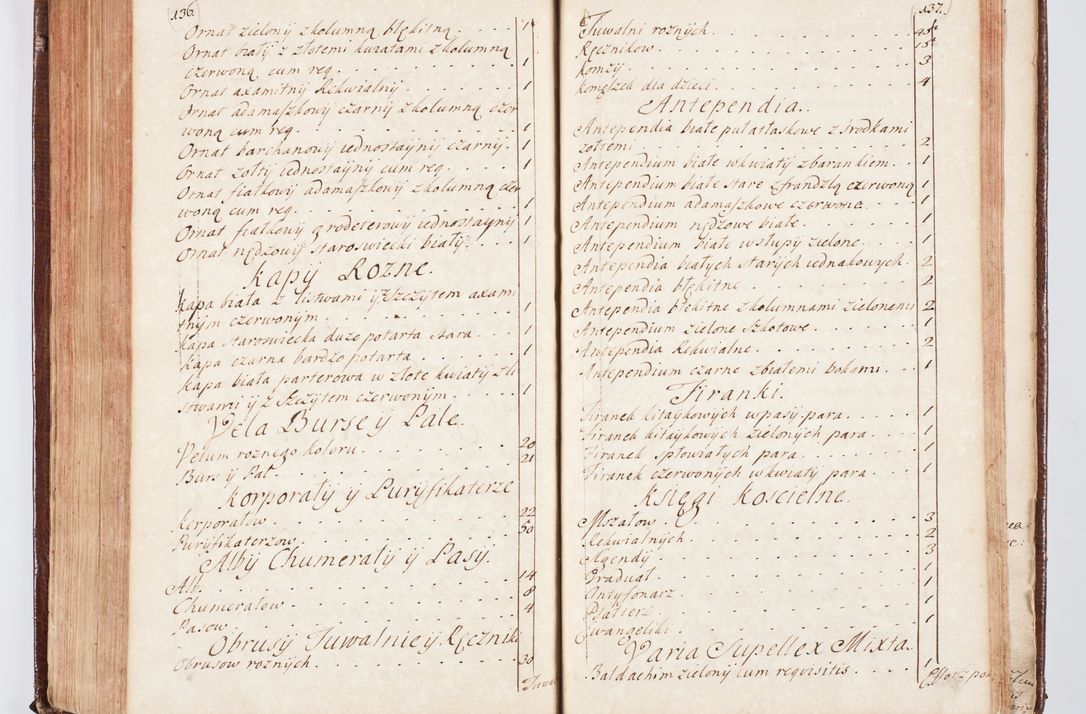 136.
Ornat zielony z kolumną błękitną. 1
Ornat biały z złotemi kwiatami z kolumną
czerwoną cum req. 1
Ornat axamitny Rekwialny. 1
Ornat adamaszkowy czarny z kolumną czer
woną cum req. 1
Ornat barchanowy iednostayny czarny. 1
Ornat zołty iednostayny cum req. 1
Ornat fiałkowy adamaszkowy z kolumną czer
woną cum req. 1
Ornat fiałkowy grodeterowy iednostayny 1
Ornat nędzowy staroswiecki biały. 1
Kapy Rozne.
Kapa biała z listwami y szczytem axami
tnym czerwonym. 1
Kapa staroswiecka duzo potarta stara. 1
Kapa czarna bardzo potarta. 1
Kapa biała parterowa w złote kwiaty z li
stwami y z szczytem czerwonym. 1
Vela Burse y Pale.
Velum roznego koloru. 20
Burs y Pal. 21
Korporały y Puryfikaterze
Korporałow. 22
Puryfikaterzow. 50
Alby Chumerały y Pasy.
Alb. 14
Chumerałow. 8
Pasow. 4
Obrusy Tuwalnie y Ręczniki
Obrusow roznych. 30
Tuwal
137.
Tuwalni roznych.
Ręcznikow. 15
Komzy. 3
Komżek dla dzieci. 4
Antependia.
Antependia białe pułatłaskowe z srodkami
zołtemi. 2
Antependium białe w kwiaty z barankiem. 1
Antependium białe stare z frandzlą czerwoną 1
Antependium adamaszkowe czerwone. 1
Antependium nędzowe białe. 1
Antependium białe w słupy zielone. 1
Antependia białych starych iednakowych. 2
Antependia błękitne. 2
Antependia błękitne z kolumnami zielonemi 2
Antependium zielone szkotowe. 1
Antependia Rekwialne. 2
Antependium czarne z białemi bokami. 1
Firanki.
Firanek kitaykowych w pasy para. 1
Firanek kitaykowych zielonych para. 1
Firanek spłowiałych para. 1
Firanek czerwonych w kwiaty para. 1
Księgi Koscielne.
Mszałow. 3
Rekwialnych. 2
Agendy. 3
Graduał. 1
Antyfonarz. 1
Psałterz. 1
Ewangeliki. 1
Varia Supellex Mixta.
Baldachim zielony cum requisitis. 1